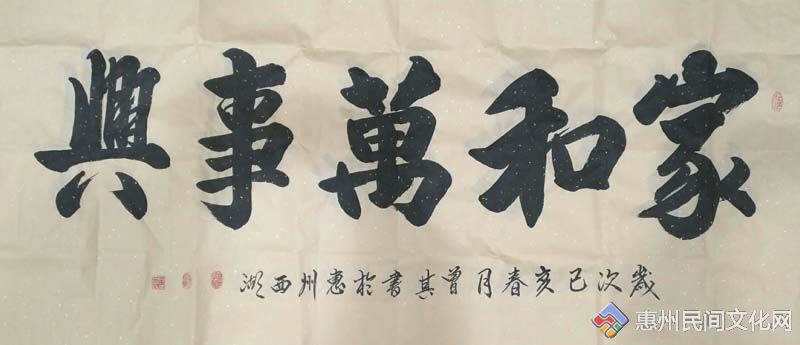 家和萬事興
歲次己亥春月曾其書於惠州西湖
惠州民间文化网